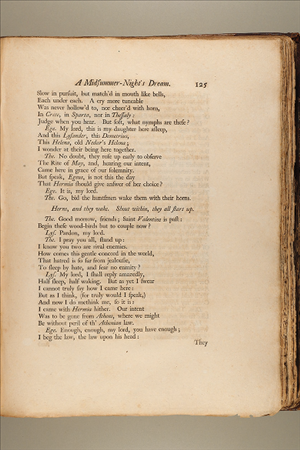 A Midsummer-Night's Dream. 125
Slow in pursuit, but match'd in mouth like bells,
Each under each. A cry more tuneable
Was never hollow'd to, nor cheer'd with horn,
In Crete, in Sparta, nor in Thessaly:
Judge when you hear. But soft, what nymphs are these?
Ege. My lord, this is my daughter here asleep,
And this Lysander, this Demetrius,
This Helena, old Nedar's Helena;
I wonder at their being here together.
The. No doubt, they rose up early to observe
The Rite of May; and, hearing our intent,
Came here in grace of our solemnity.
But speak, Egeus, is not this the day
That Hermia should give answer of her choice?
Ege. It is, my lord.
The. Go, bid the huntsmen wake them with their horns.
Horns, and they wake. Shout within, they all start up.
The. Good morrow, friends; Saint Valentine is past:
Begin these wood-birds but to couple now?
Lys. Pardon, my lord.
The. I pray you all, stand up:
I know you two are rival enemies.
How comes this gentle concord in the world,
That hatred is so far from jealousie,
To sleep by hate, and fear no enmity?
Lys. My lord, I shall reply amazedly,
Half sleep, half waking. But as yet I swear
I cannot truly say how I came here:
But as I think, (for truly would I speak,)
And now I do bethink me, so it is:
I came with Hermia hither. Our intent
Was to be gone from Athens, where we might
Be without peril of th' Athenian law.
Ege. Enough, enough, my lord, you have enough;
I beg the law, the law upon his head:
They